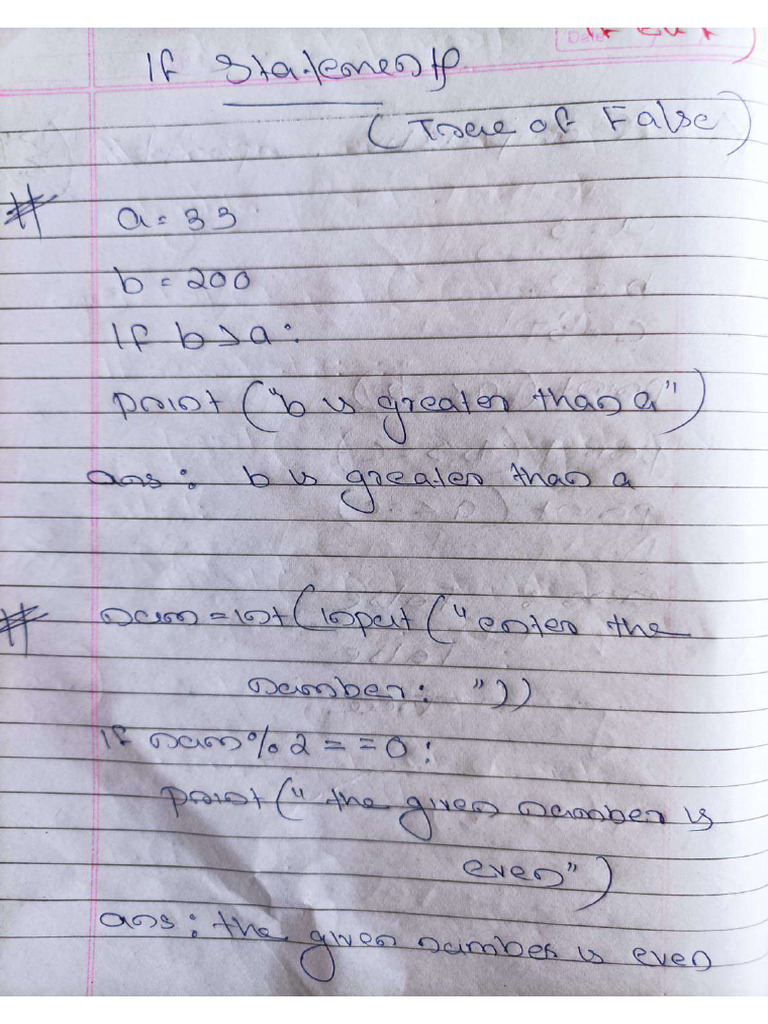 If Statements
(True of False)
# a = 33
b = 200
If b > a :
print ("b is greater than a")
ans : b is greater than a
# num = int (input ("enter the
number : "))
If num % 2 = = 0 :
print (" the given number is
even")
ans : the given number is even